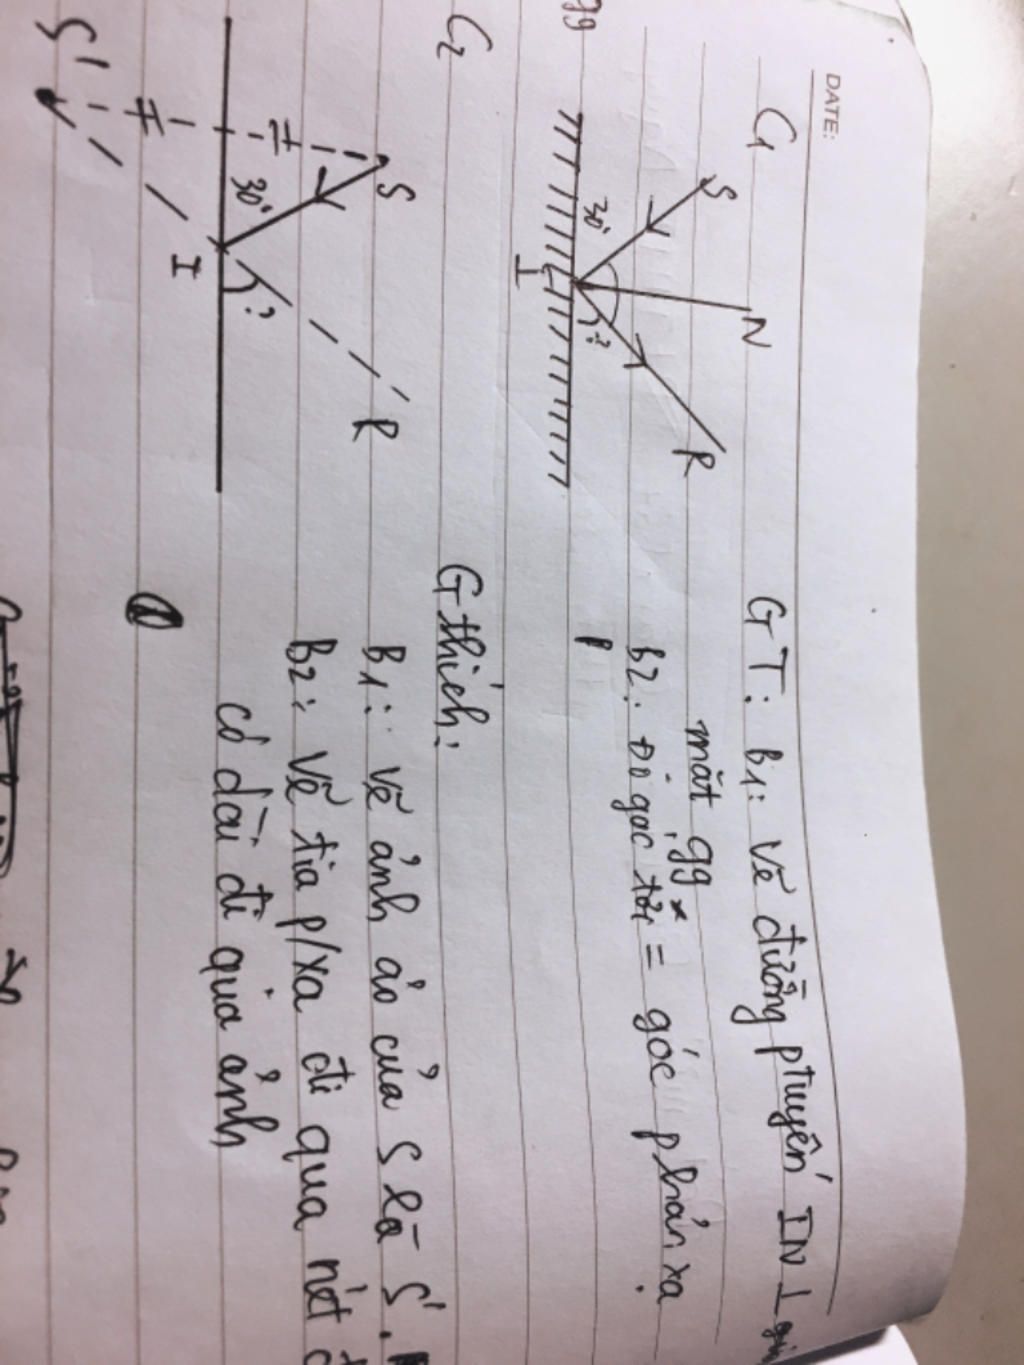 DATE:
C1
S
N
R
30°
?
I
GT: B1: Vẽ đường ptuyến IN ⊥
mặt gg
B2: Đo góc tới = góc phản xạ
gg
C2
S
R
30°
?
I
S'
Gthích:
B1: Vẽ ảnh ảo của S là S'.
B2: Vẽ tia p/xạ đi qua nét
có dài đi qua ảnh